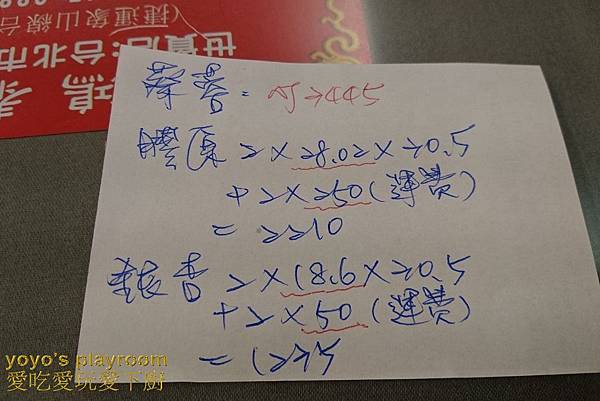 世貿店:台北市
(捷運象山線台
= NT3445
膠原 2×28.02×30.5
+2×250(運費)
= 2210
2×18.6×30.5
+2×50(運費)
= 1235
yoyo's playroom
愛吃愛玩愛下廚